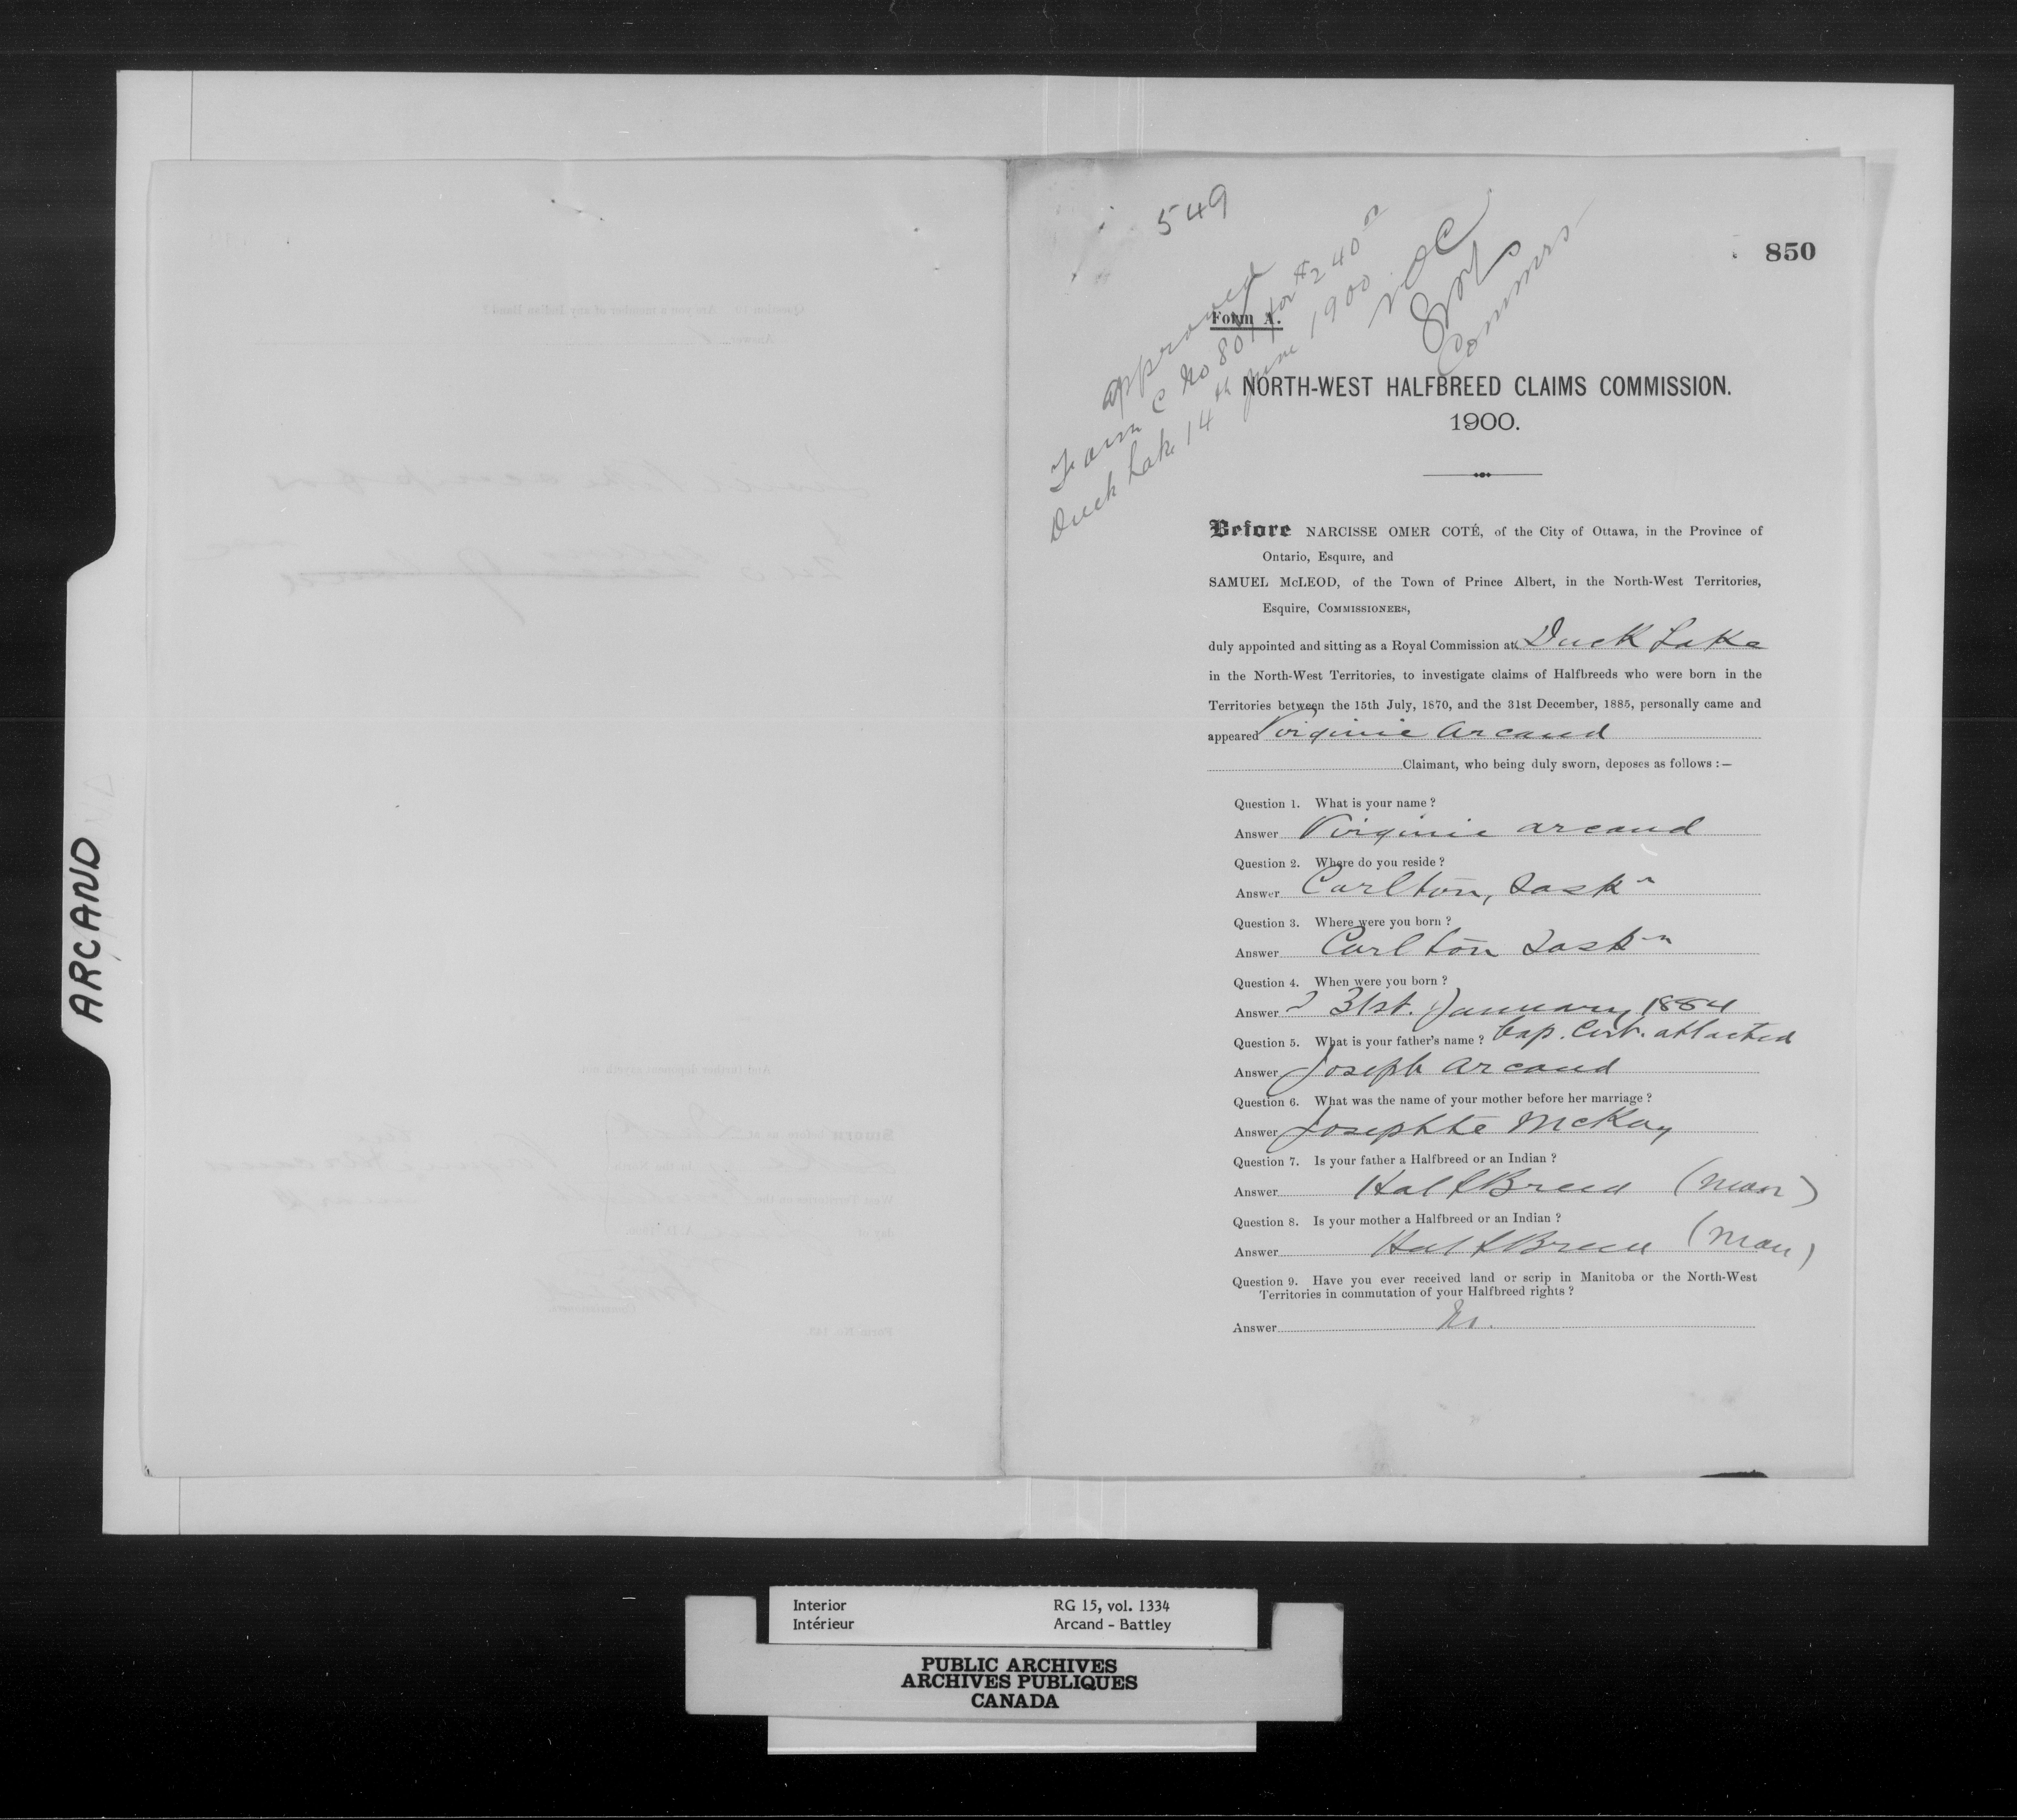 ARCAND
549
850
approved
Form C No 801 for $240 00
Duck Lake 14th June 1900
NOC
Commrs
Form A.
NORTH-WEST HALFBREED CLAIMS COMMISSION.
1900.
Before NARCISSE OMER COTÉ, of the City of Ottawa, in the Province of
Ontario, Esquire, and
SAMUEL McLEOD, of the Town of Prince Albert, in the North-West Territories,
Esquire, COMMISSIONERS,
duly appointed and sitting as a Royal Commission at Duck Lake
in the North-West Territories, to investigate claims of Halfbreeds who were born in the
Territories between the 15th July, 1870, and the 31st December, 1885, personally came and
appeared Virginie Arcand
Claimant, who being duly sworn, deposes as follows :—
Question 1. What is your name ?
Answer Virginie Arcand
Question 2. Where do you reside ?
Answer Carlton, Sask n
Question 3. Where were you born ?
Answer Carlton Sask n
Question 4. When were you born ?
Answer 31st. January 1884
Question 5. What is your father's name ? bap. Cert. attached
Answer Joseph Arcand
Question 6. What was the name of your mother before her marriage ?
Answer Josephte McKay
Question 7. Is your father a Halfbreed or an Indian ?
Answer HalfBreed (Man)
Question 8. Is your mother a Halfbreed or an Indian ?
Answer HalfBreed (Man)
Question 9. Have you ever received land or scrip in Manitoba or the North-West
Territories in commutation of your Halfbreed rights ?
Answer No.
Interior RG 15, vol. 1334
Intérieur Arcand - Battley
PUBLIC ARCHIVES
ARCHIVES PUBLIQUES
CANADA